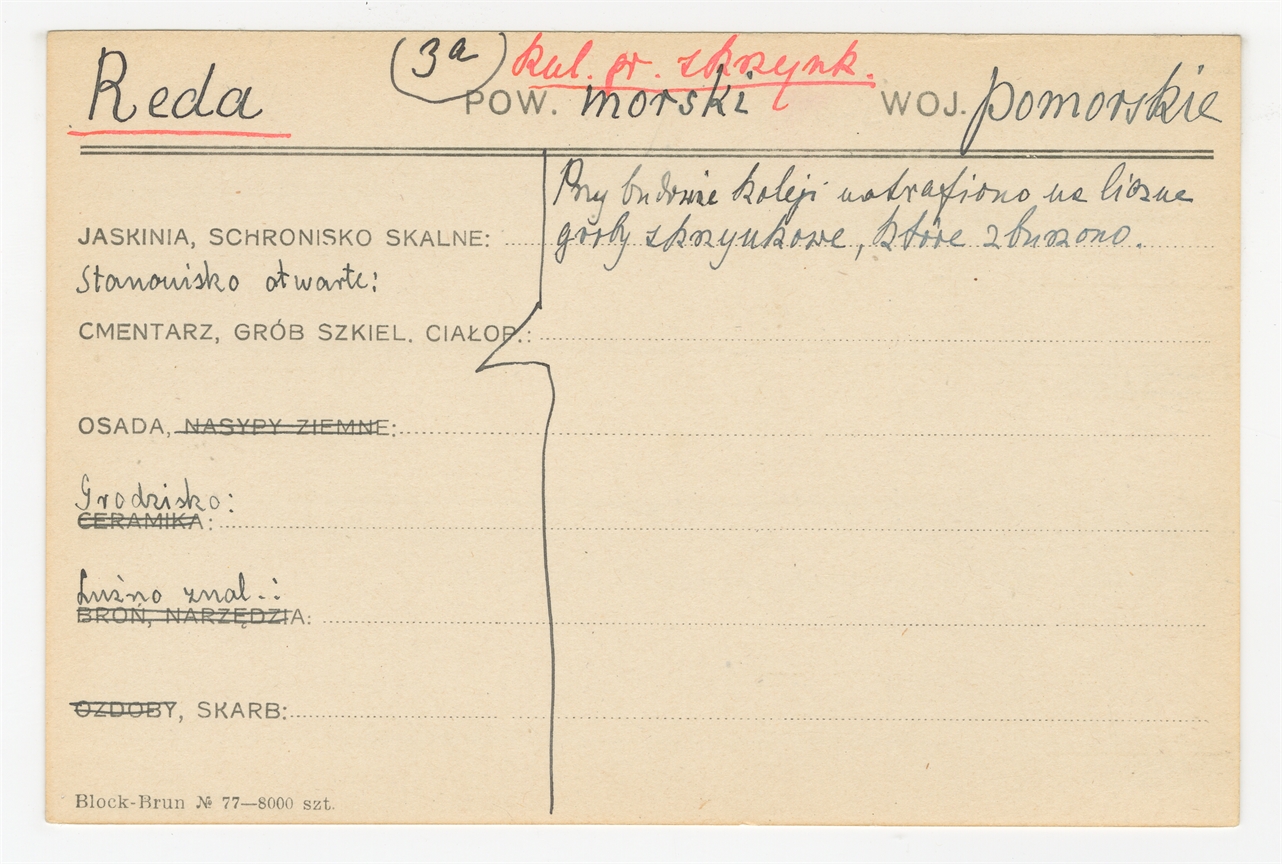 (3a) kul. gr. skrzynk.
Reda POW. morski WOJ. pomorskie
Przy budowie koleji natrafiono na liczne
groby skrzynkowe, które zburzono.
JASKINIA, SCHRONISKO SKALNE:
Stanowisko otwarte:
CMENTARZ, GRÓB SZKIEL. CIAŁOP.:
OSADA, NASYPY ZIEMNE:
Grodzisko:
CERAMIKA:
Luźno znal.:
BROŃ, NARZĘDZIA:
OZDOBY, SKARB:
Block-Brun № 77—8000 szt.